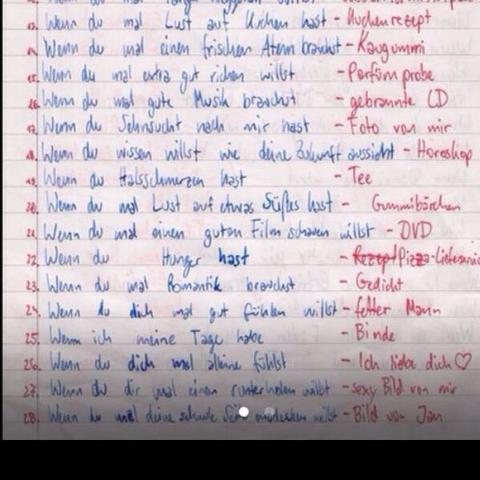 Wenn du mal Lust auf Kuchen hast - Kuchenrezept
Wenn du mal einen frischen Atem brauchst - Kaugummi
15. Wenn du mal extra gut riechen willst - Parfüm probe
16. Wenn du mal gute Musik brauchst - gebrannte CD
17. Wenn du Sehnsucht nach mir hast - Foto von mir
18. Wenn du wissen willst wie deine Zukunft aussieht - Horoskop
19. Wenn du Halsschmerzen hast - Tee
20. Wenn du mal Lust auf etwas Süßes hast - Gummibärchen
21. Wenn du mal einen guten Film schauen willst - DVD
22. Wenn du Hunger hast - Pizza-Lieferservice
23. Wenn du mal Romantik brauchst - Gedicht
24. Wenn du dich mal gut fühlen willst - fetter Mann
25. Wenn ich meine Tage habe - Binde
26. Wenn du dich mal alleine fühlst - Ich liebe dich ♡
27. Wenn du dir mal einen runterholen willst - sexy Bild von mir
28. Wenn du mal deine schwule Seite entdecken willst - Bild von Jan